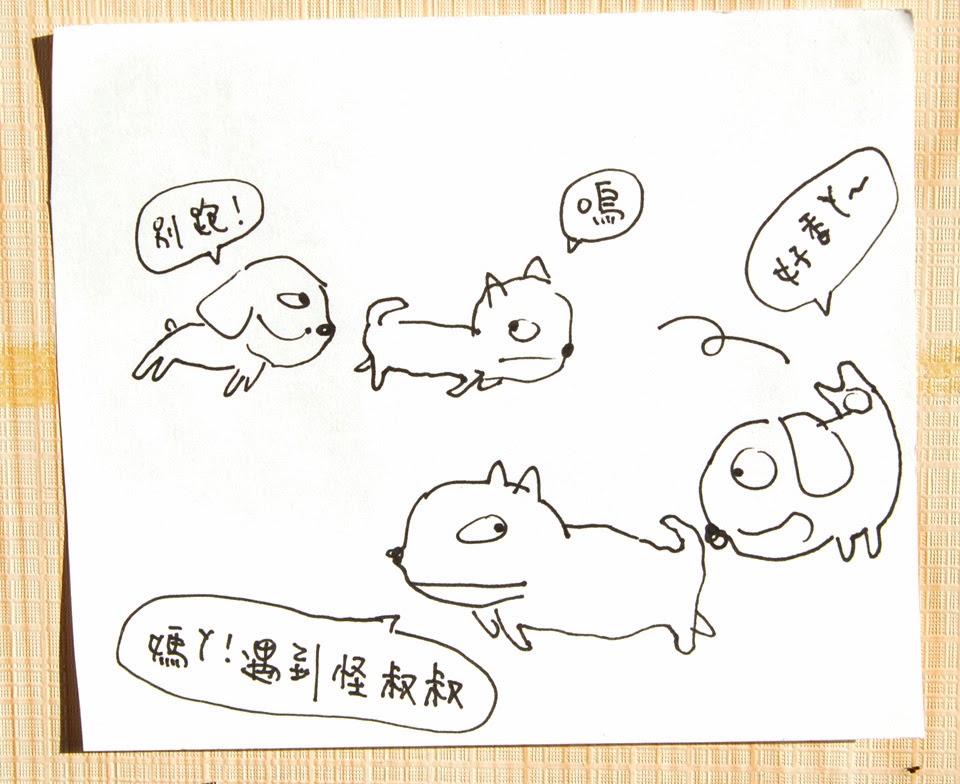 別跑!
嗚
好香ㄚ~
媽ㄚ!遇到怪叔叔